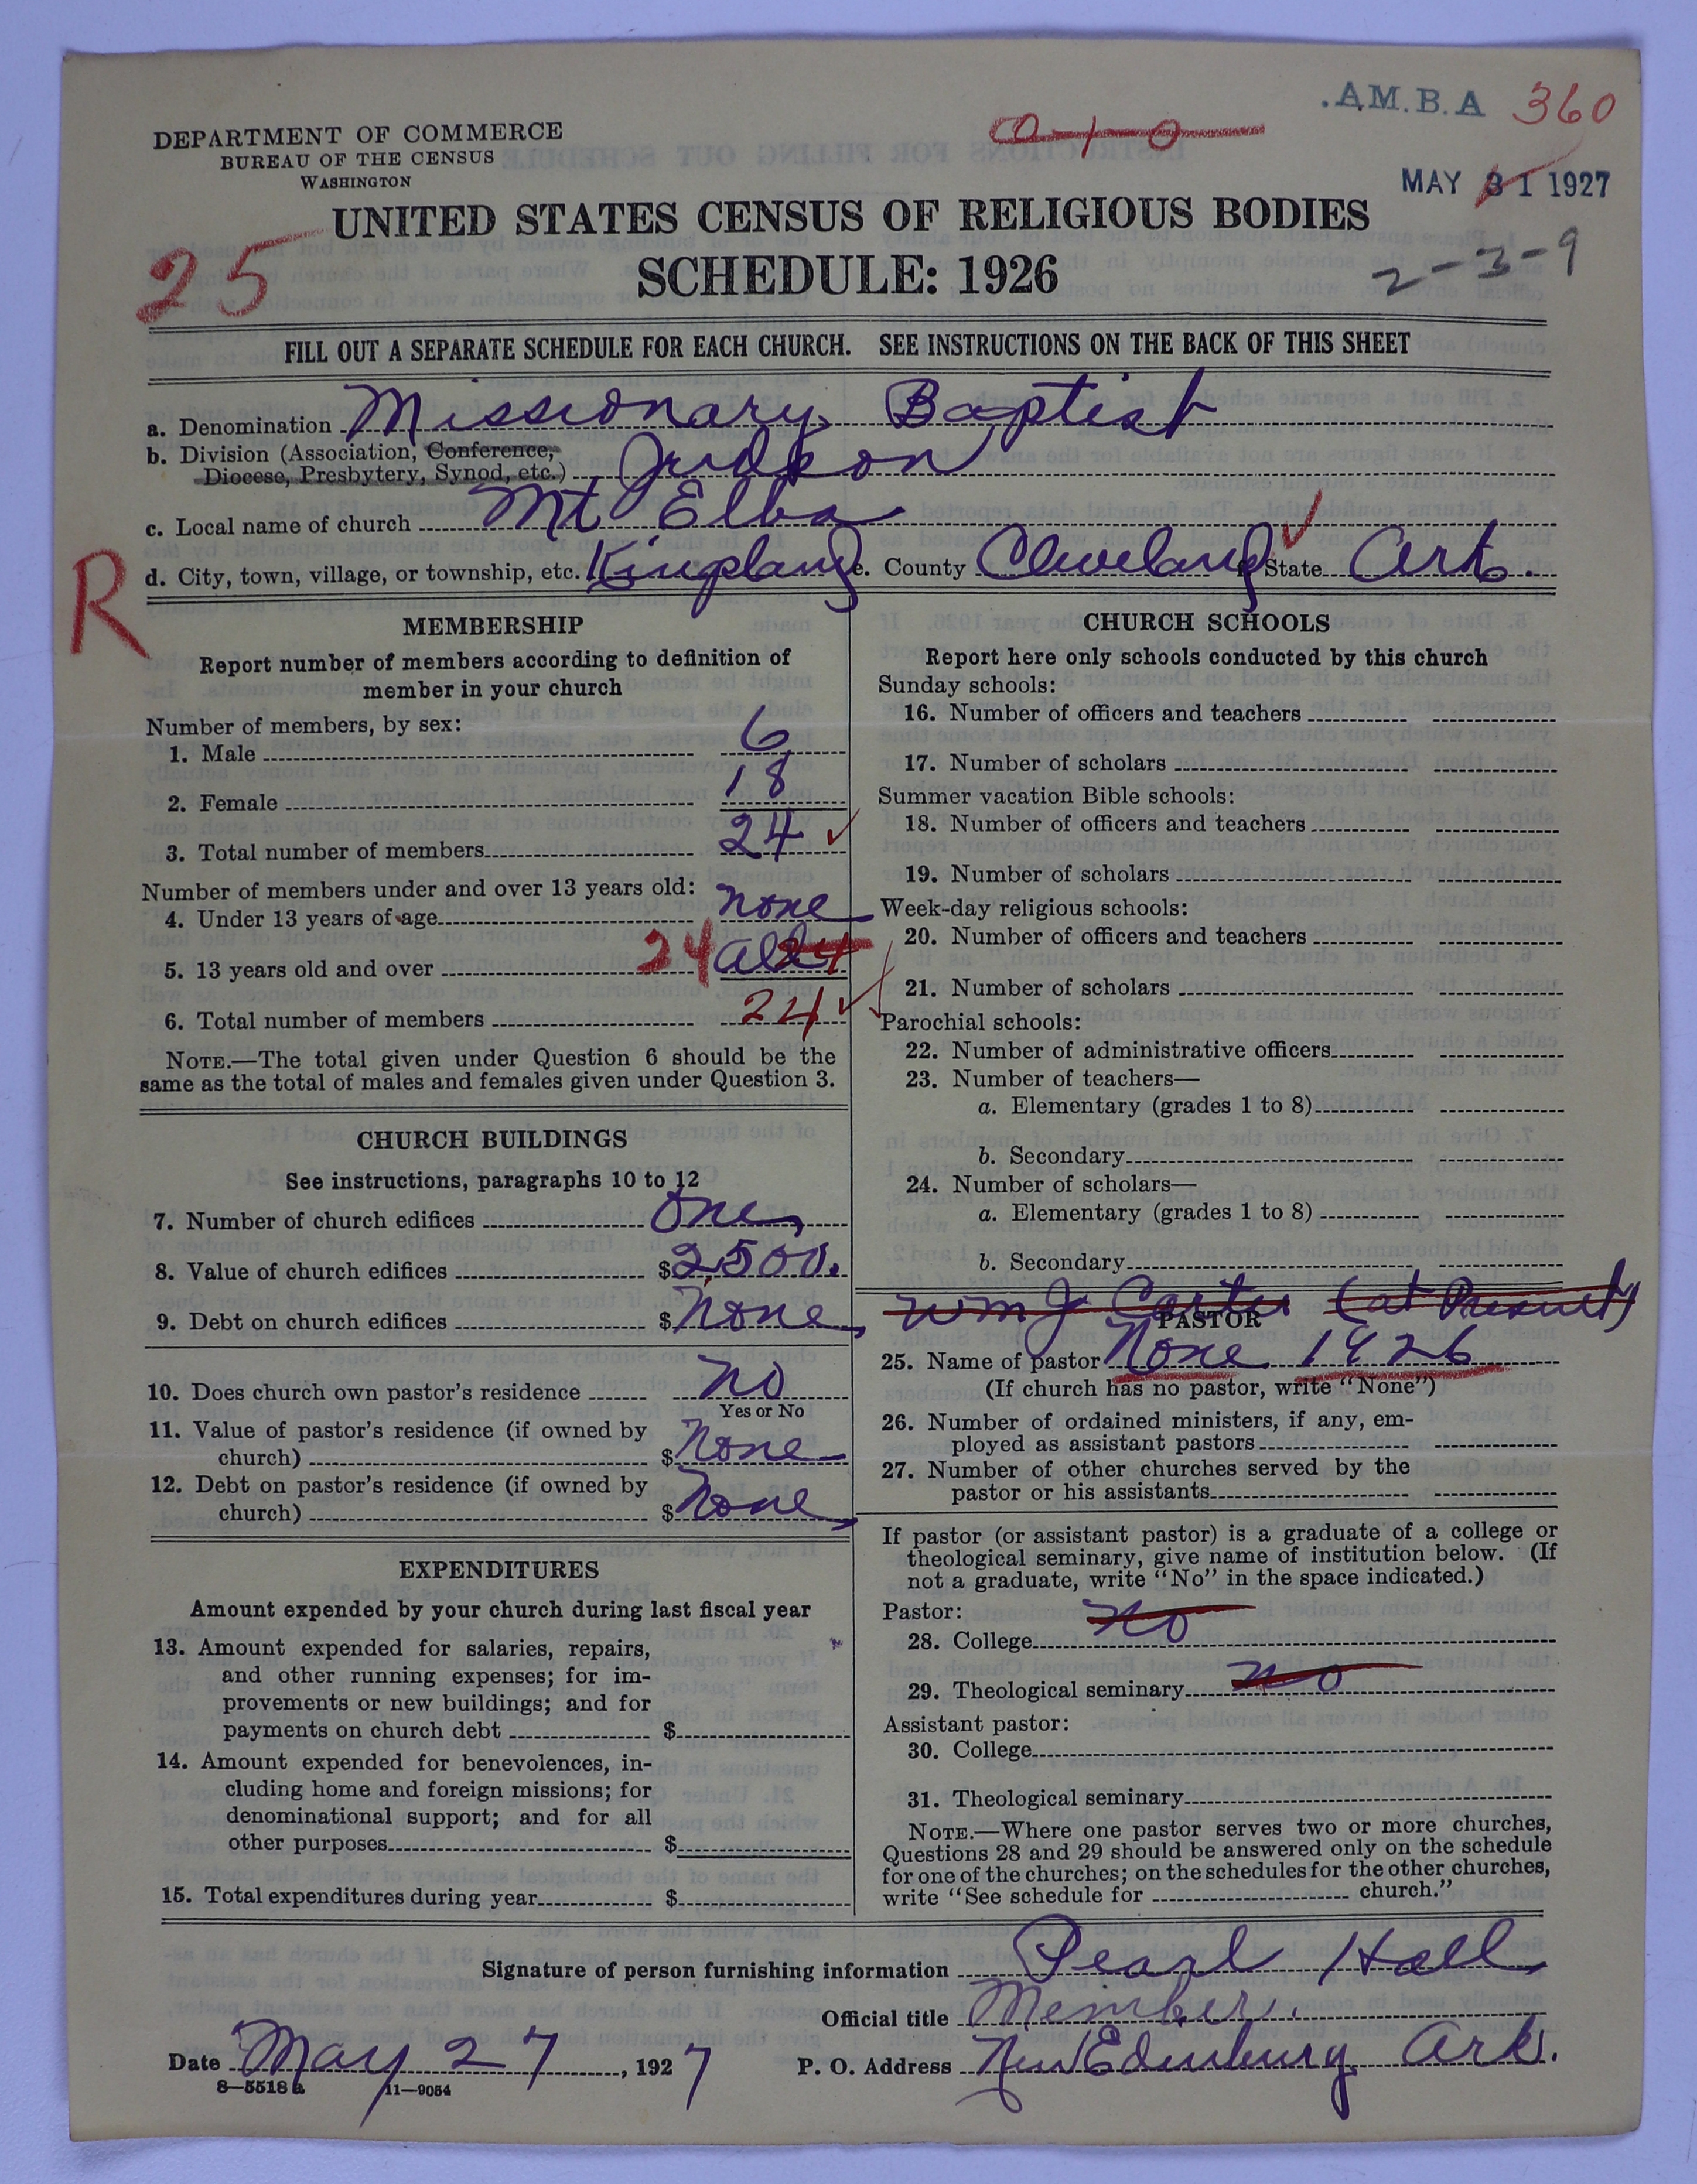 .A.M.B.A 360
a-1-0
DEPARTMENT OF COMMERCE
BUREAU OF THE CENSUS
WASHINGTON
MAY 31 1927
UNITED STATES CENSUS OF RELIGIOUS BODIES
25
SCHEDULE: 1926
2-3-9
FILL OUT A SEPARATE SCHEDULE FOR EACH CHURCH. SEE INSTRUCTIONS ON THE BACK OF THIS SHEET
a. Denomination Missionary Baptist
b. Division (Association, Conference,
Diocese, Presbytery, Synod, etc.) Judson
c. Local name of church Mt Elba
R
d. City, town, village, or township, etc. Kingsland e. County Cleveland State Ark.
MEMBERSHIP
Report number of members according to definition of
member in your church
Number of members, by sex:
1. Male 6
2. Female 18
3. Total number of members 24
Number of members under and over 13 years old:
4. Under 13 years of age none
5. 13 years old and over 24 all 24
6. Total number of members 24
NOTE.—The total given under Question 6 should be the
same as the total of males and females given under Question 3.
CHURCH BUILDINGS
See instructions, paragraphs 10 to 12
7. Number of church edifices One
8. Value of church edifices $2,500.
9. Debt on church edifices $None
10. Does church own pastor's residence No
Yes or No
11. Value of pastor's residence (if owned by
church) $None
12. Debt on pastor's residence (if owned by
church) $None
EXPENDITURES
Amount expended by your church during last fiscal year
13. Amount expended for salaries, repairs,
and other running expenses; for im-
provements or new buildings; and for
payments on church debt $
14. Amount expended for benevolences, in-
cluding home and foreign missions; for
denominational support; and for all
other purposes $
15. Total expenditures during year $
CHURCH SCHOOLS
Report here only schools conducted by this church
Sunday schools:
16. Number of officers and teachers
17. Number of scholars
Summer vacation Bible schools:
18. Number of officers and teachers
19. Number of scholars
Week-day religious schools:
20. Number of officers and teachers
21. Number of scholars
Parochial schools:
22. Number of administrative officers
23. Number of teachers—
a. Elementary (grades 1 to 8)
b. Secondary
24. Number of scholars—
a. Elementary (grades 1 to 8)
b. Secondary
Wm J Carter (at Present)
PASTOR
25. Name of pastor None 1926
(If church has no pastor, write "None")
26. Number of ordained ministers, if any, em-
ployed as assistant pastors
27. Number of other churches served by the
pastor or his assistants
If pastor (or assistant pastor) is a graduate of a college or
theological seminary, give name of institution below. (If
not a graduate, write "No" in the space indicated.)
Pastor:
28. College No
29. Theological seminary No
Assistant pastor:
30. College
31. Theological seminary
NOTE.—Where one pastor serves two or more churches,
Questions 28 and 29 should be answered only on the schedule
for one of the churches; on the schedules for the other churches,
write "See schedule for church."
Signature of person furnishing information Pearl Hall
Official title Member.
Date May 27, 1927 P. O. Address New Edinburg Ark.
8—5518 a 11—9054